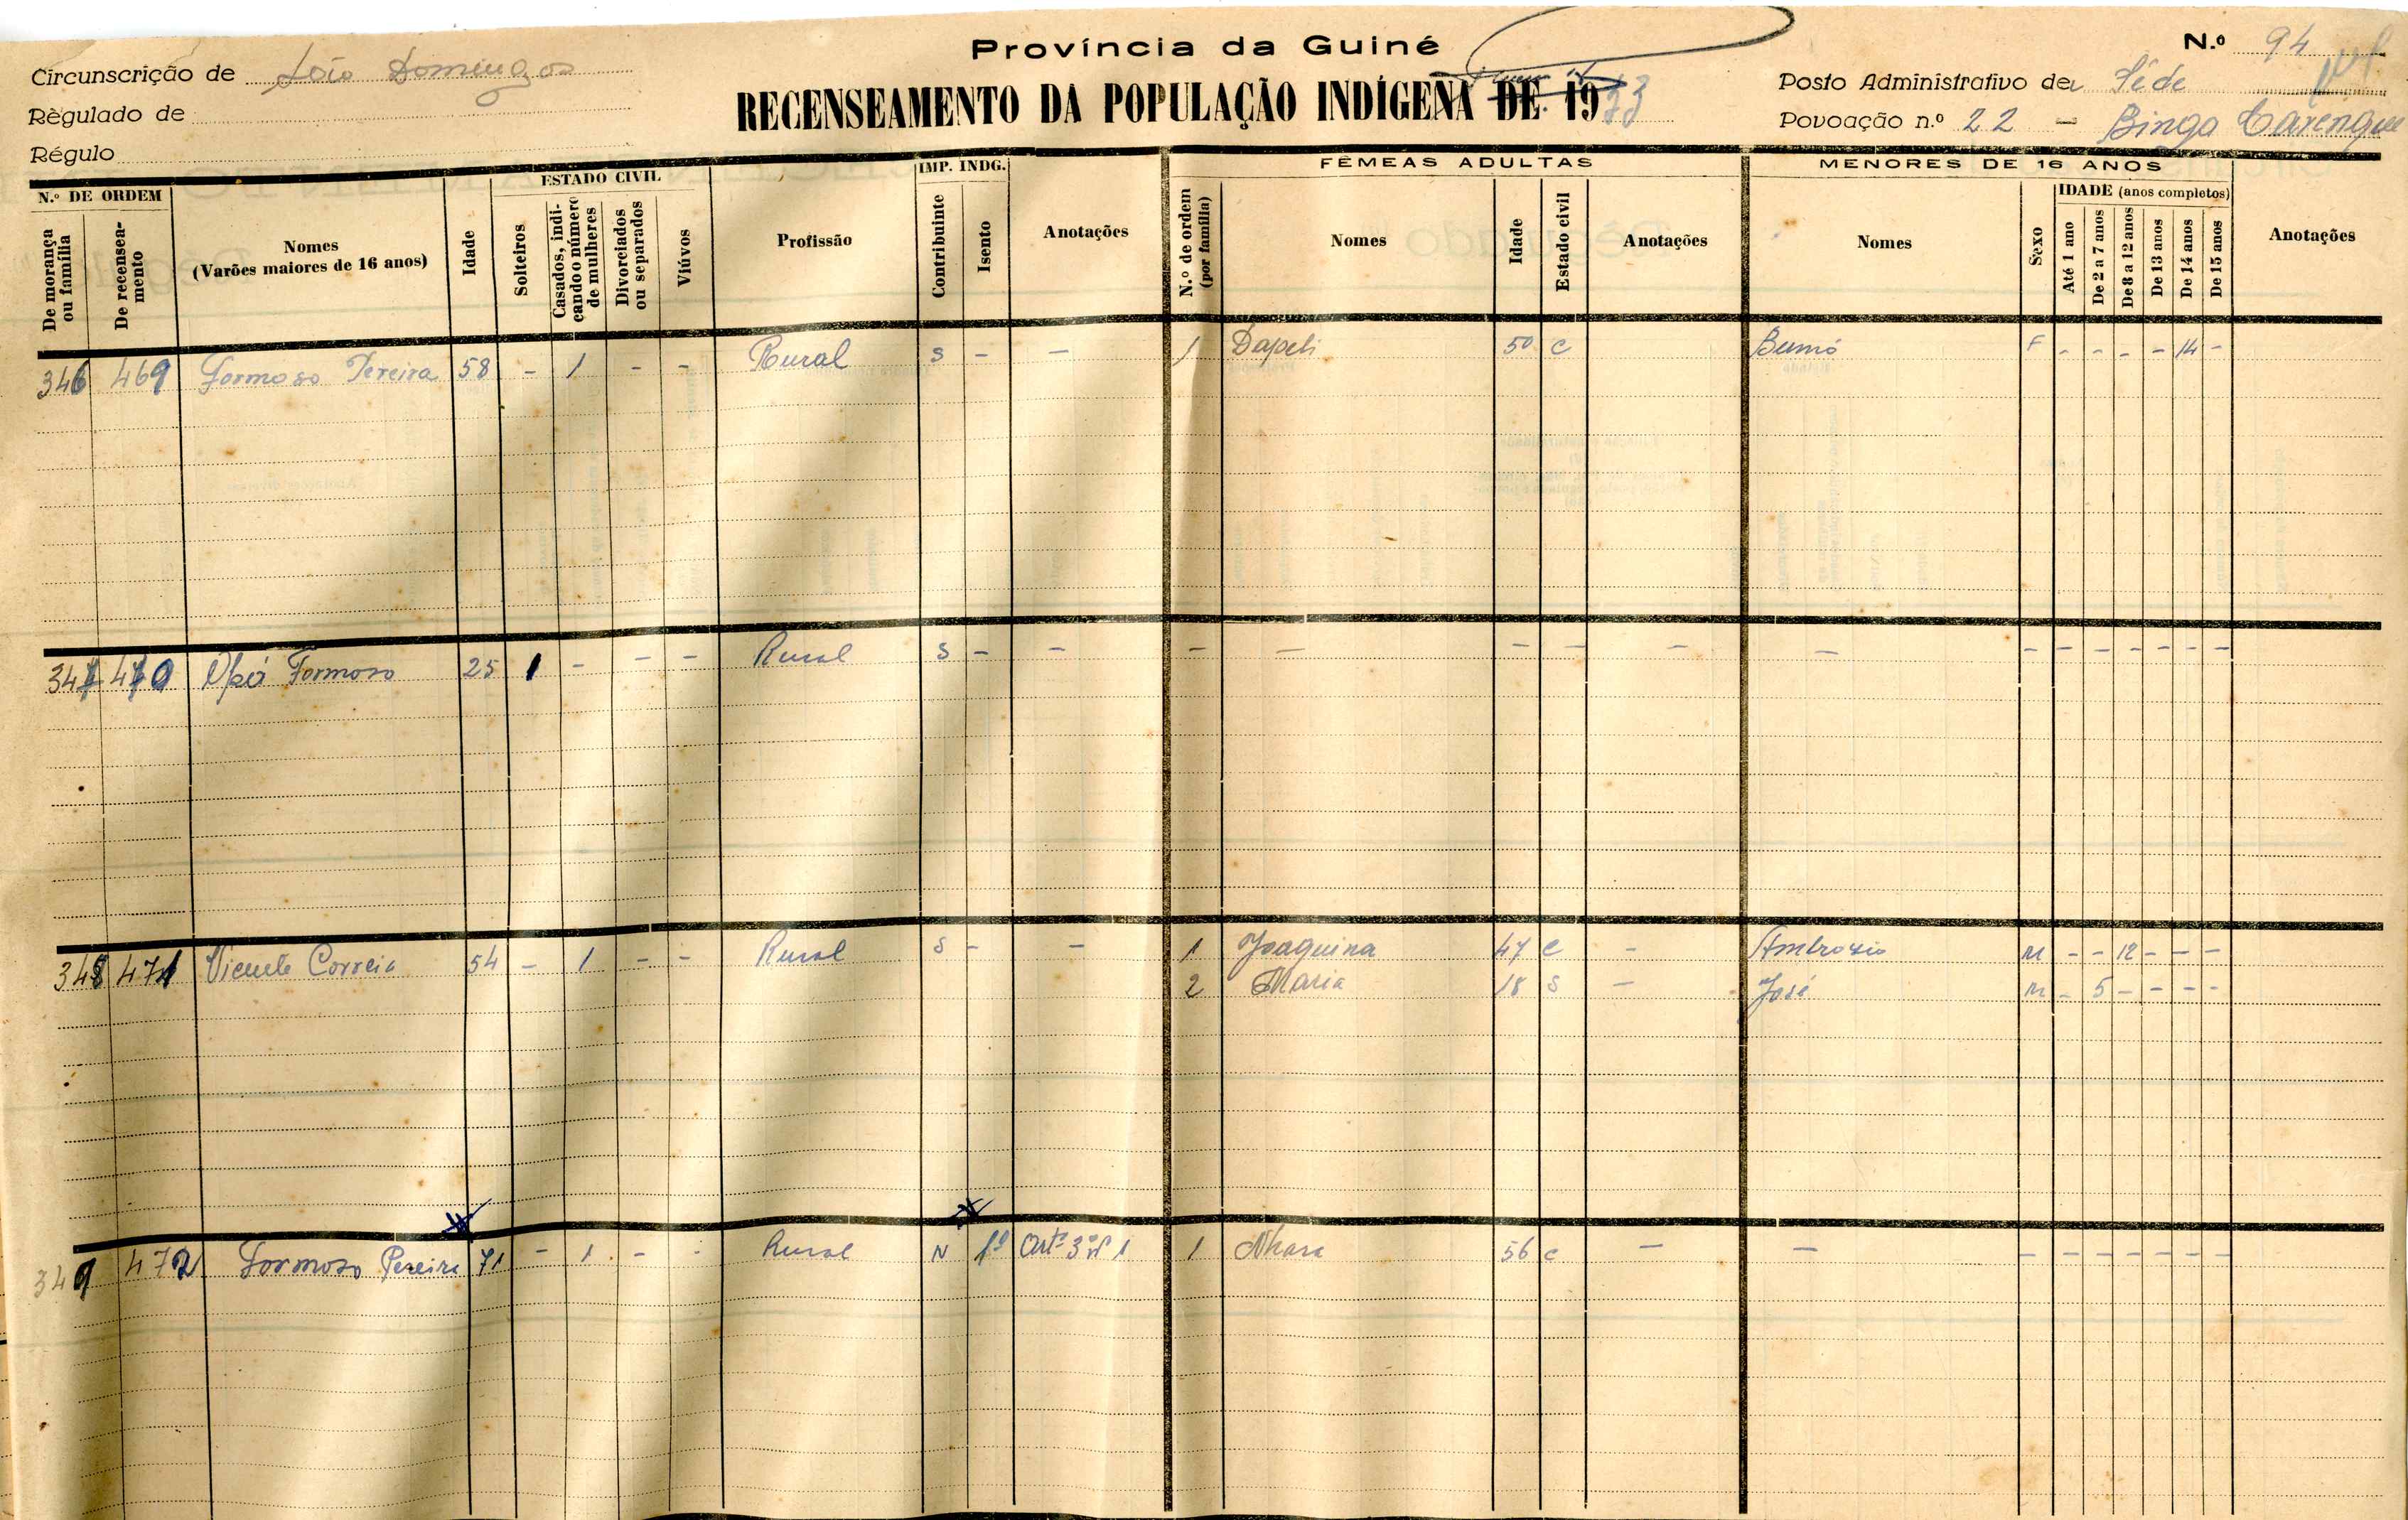 Província da Guiné
N.º 94
Circunscrição de São Domingos
RECENSEAMENTO DA POPULAÇÃO INDÍGENA DE 1953
Posto Administrativo de Séde
Règulado de
Povoação n.º 22 - Binga Carenque
Régulo
N.º DE ORDEM
De morança ou família
De recenseamento
Nomes
(Varões maiores de 16 anos)
Idade
ESTADO CIVIL
Solteiros
Casados, indicando o número de mulheres
Divorciados ou separados
Viúvos
Profissão
IMP. INDG.
Contribuinte
Isento
Anotações
FÊMEAS ADULTAS
N.º de ordem (por família)
Nomes
Idade
Estado civil
Anotações
MENORES DE 16 ANOS
Nomes
Sexo
IDADE (anos completos)
Até 1 ano
De 2 a 7 anos
De 8 a 12 anos
De 13 anos
De 14 anos
De 15 anos
Anotações
346 469 Formoso Pereira 58 - 1 - - Rural S - - 1 Dapeli 50 C Bumó F - - - - 14 -
347 470 Formoso 25 1 - - - Rural S - - - - - - - - - - - - - - -
348 471 Vicente Correia 54 - 1 - - Rural S - - 1 Joaquina 47 C - Ambrosio M - - 12 - - -
2 Maria 18 S - José M - 5 - - - -
349 472 Formoso Pereira 71 - 1 - - Rural N 1º Artº 3º nº 1 1 Nhara 56 C - - - - - - - - -